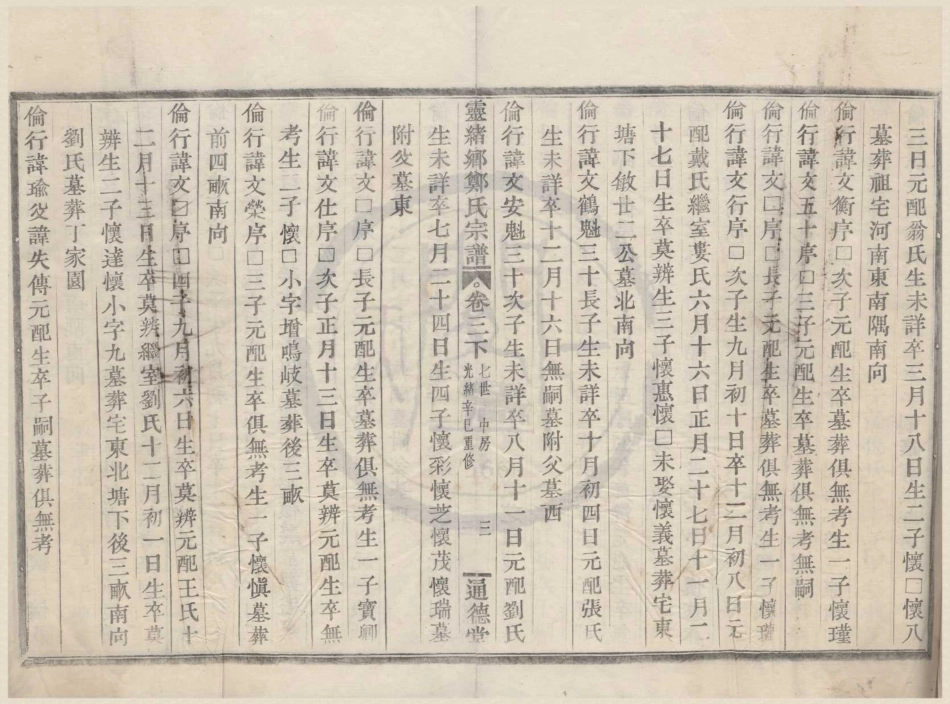 三日元配翁氏生未詳卒三月十八日生二子懷□懷八
墓葬祖宅河南東南隅南向
倫行諱文衡序□次子元配生卒墓葬俱無考生一子懷瑾
倫行諱文五十序□三子元配生卒墓葬俱無考無嗣
倫行諱文□序□長子元配生卒墓葬俱無考生一子懷瓏
倫行諱文行序□次子生九月初十日卒十二月初八日元
配戴氏繼室婁氏六月十六日正月二十七日十一月二
十七日生卒莫辨生三子懷惠懷□未娶懷義墓葬宅東
塘下敏廿二公墓北南向
倫行諱文鶴魁三十長子生未詳卒十月初四日元配張氏
生未詳卒十二月十六日無嗣墓附父墓西
倫行諱文安魁三十次子生未詳卒八月十一日元配劉氏
靈緒鄉鄭氏宗譜 卷三下 七世 中房 光緒辛巳重修 三 通德堂
生未詳卒七月二十四日生四子懷彩懷芝懷茂懷瑞墓
附父墓東
倫行諱文□序□長子元配生卒墓葬俱無考生一子寶卿
倫行諱文仕序□次子正月十三日生卒莫辨元配生卒無
考生二子懷□小字增鳴岐墓葬後三畝
倫行諱文榮序□三子元配生卒俱無考生一子懷愼墓葬
前四畝南向
倫行諱文□序□四子九月初六日生卒莫辨元配王氏十
二月十三日生卒莫辨繼室劉氏十二月初一日生卒莫
辨生二子懷達懷小字九墓葬宅東北塘下後三畝南向
劉氏墓葬丁家園
倫行諱瑜父諱失傳元配生卒子嗣墓葬俱無考